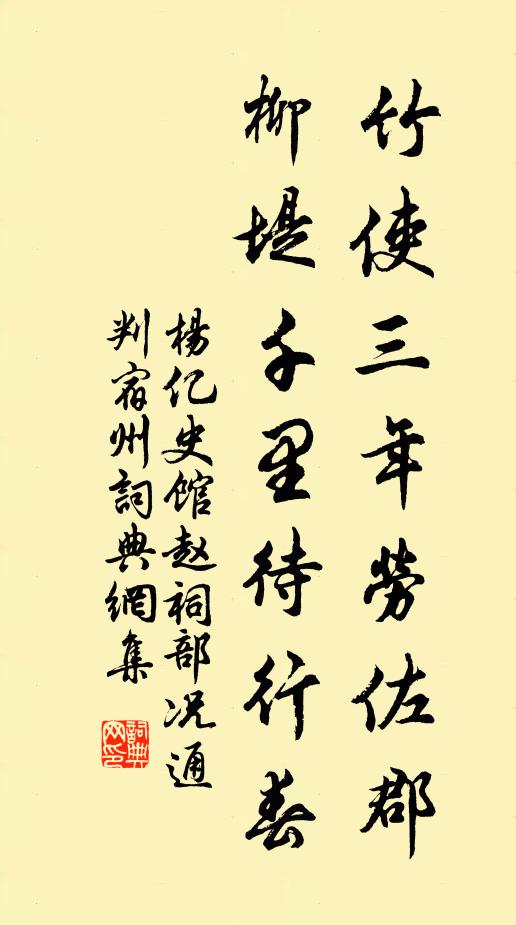 竹使三年劳佐郡
柳堤千里待行春
杨亿史馆赵祠部况通
判宿州詞典網集
詞典
网印